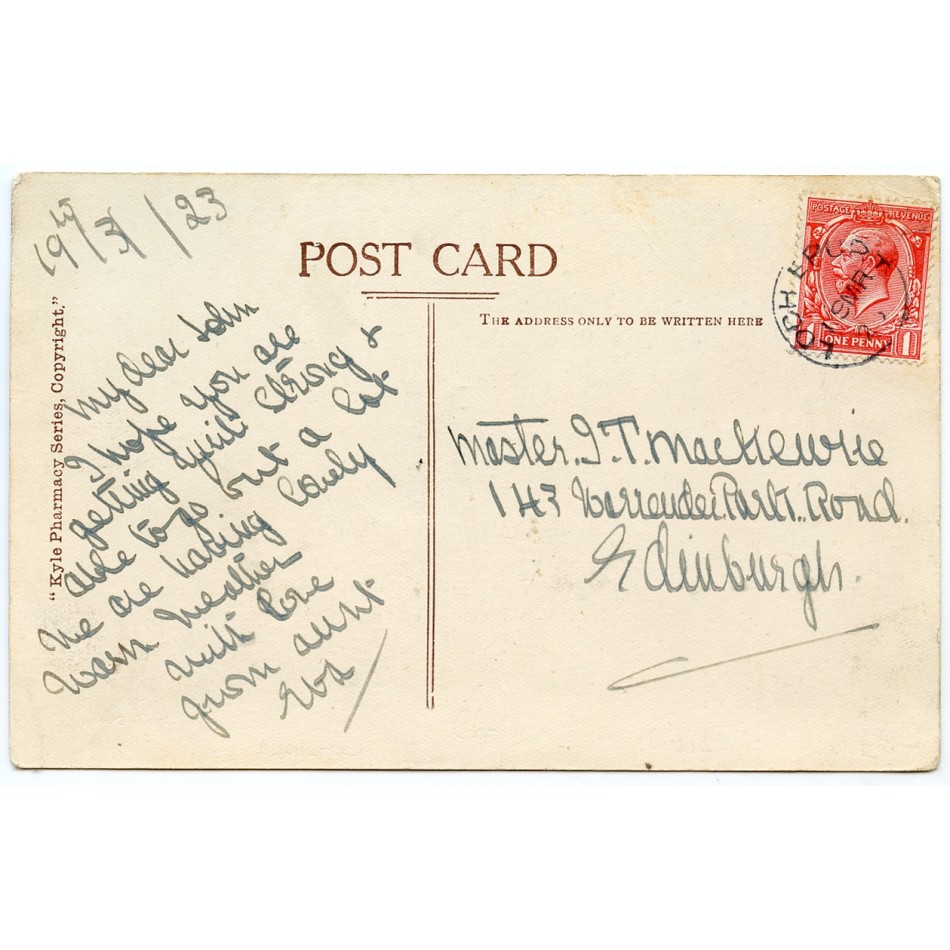 19th/3/23
POST CARD
"Kyle Pharmacy Series, Copyright."
THE ADDRESS ONLY TO BE WRITTEN HERE
POSTAGE REVENUE
ONE PENNY 1
19 MR
My dear John
I hope you are
getting quite strong &
able to go out a lot
We are having lovely
warm weather
with love
from aunt
Master. J. T. Mackenzie
143 Warrender Park. Road.
Edinburgh.